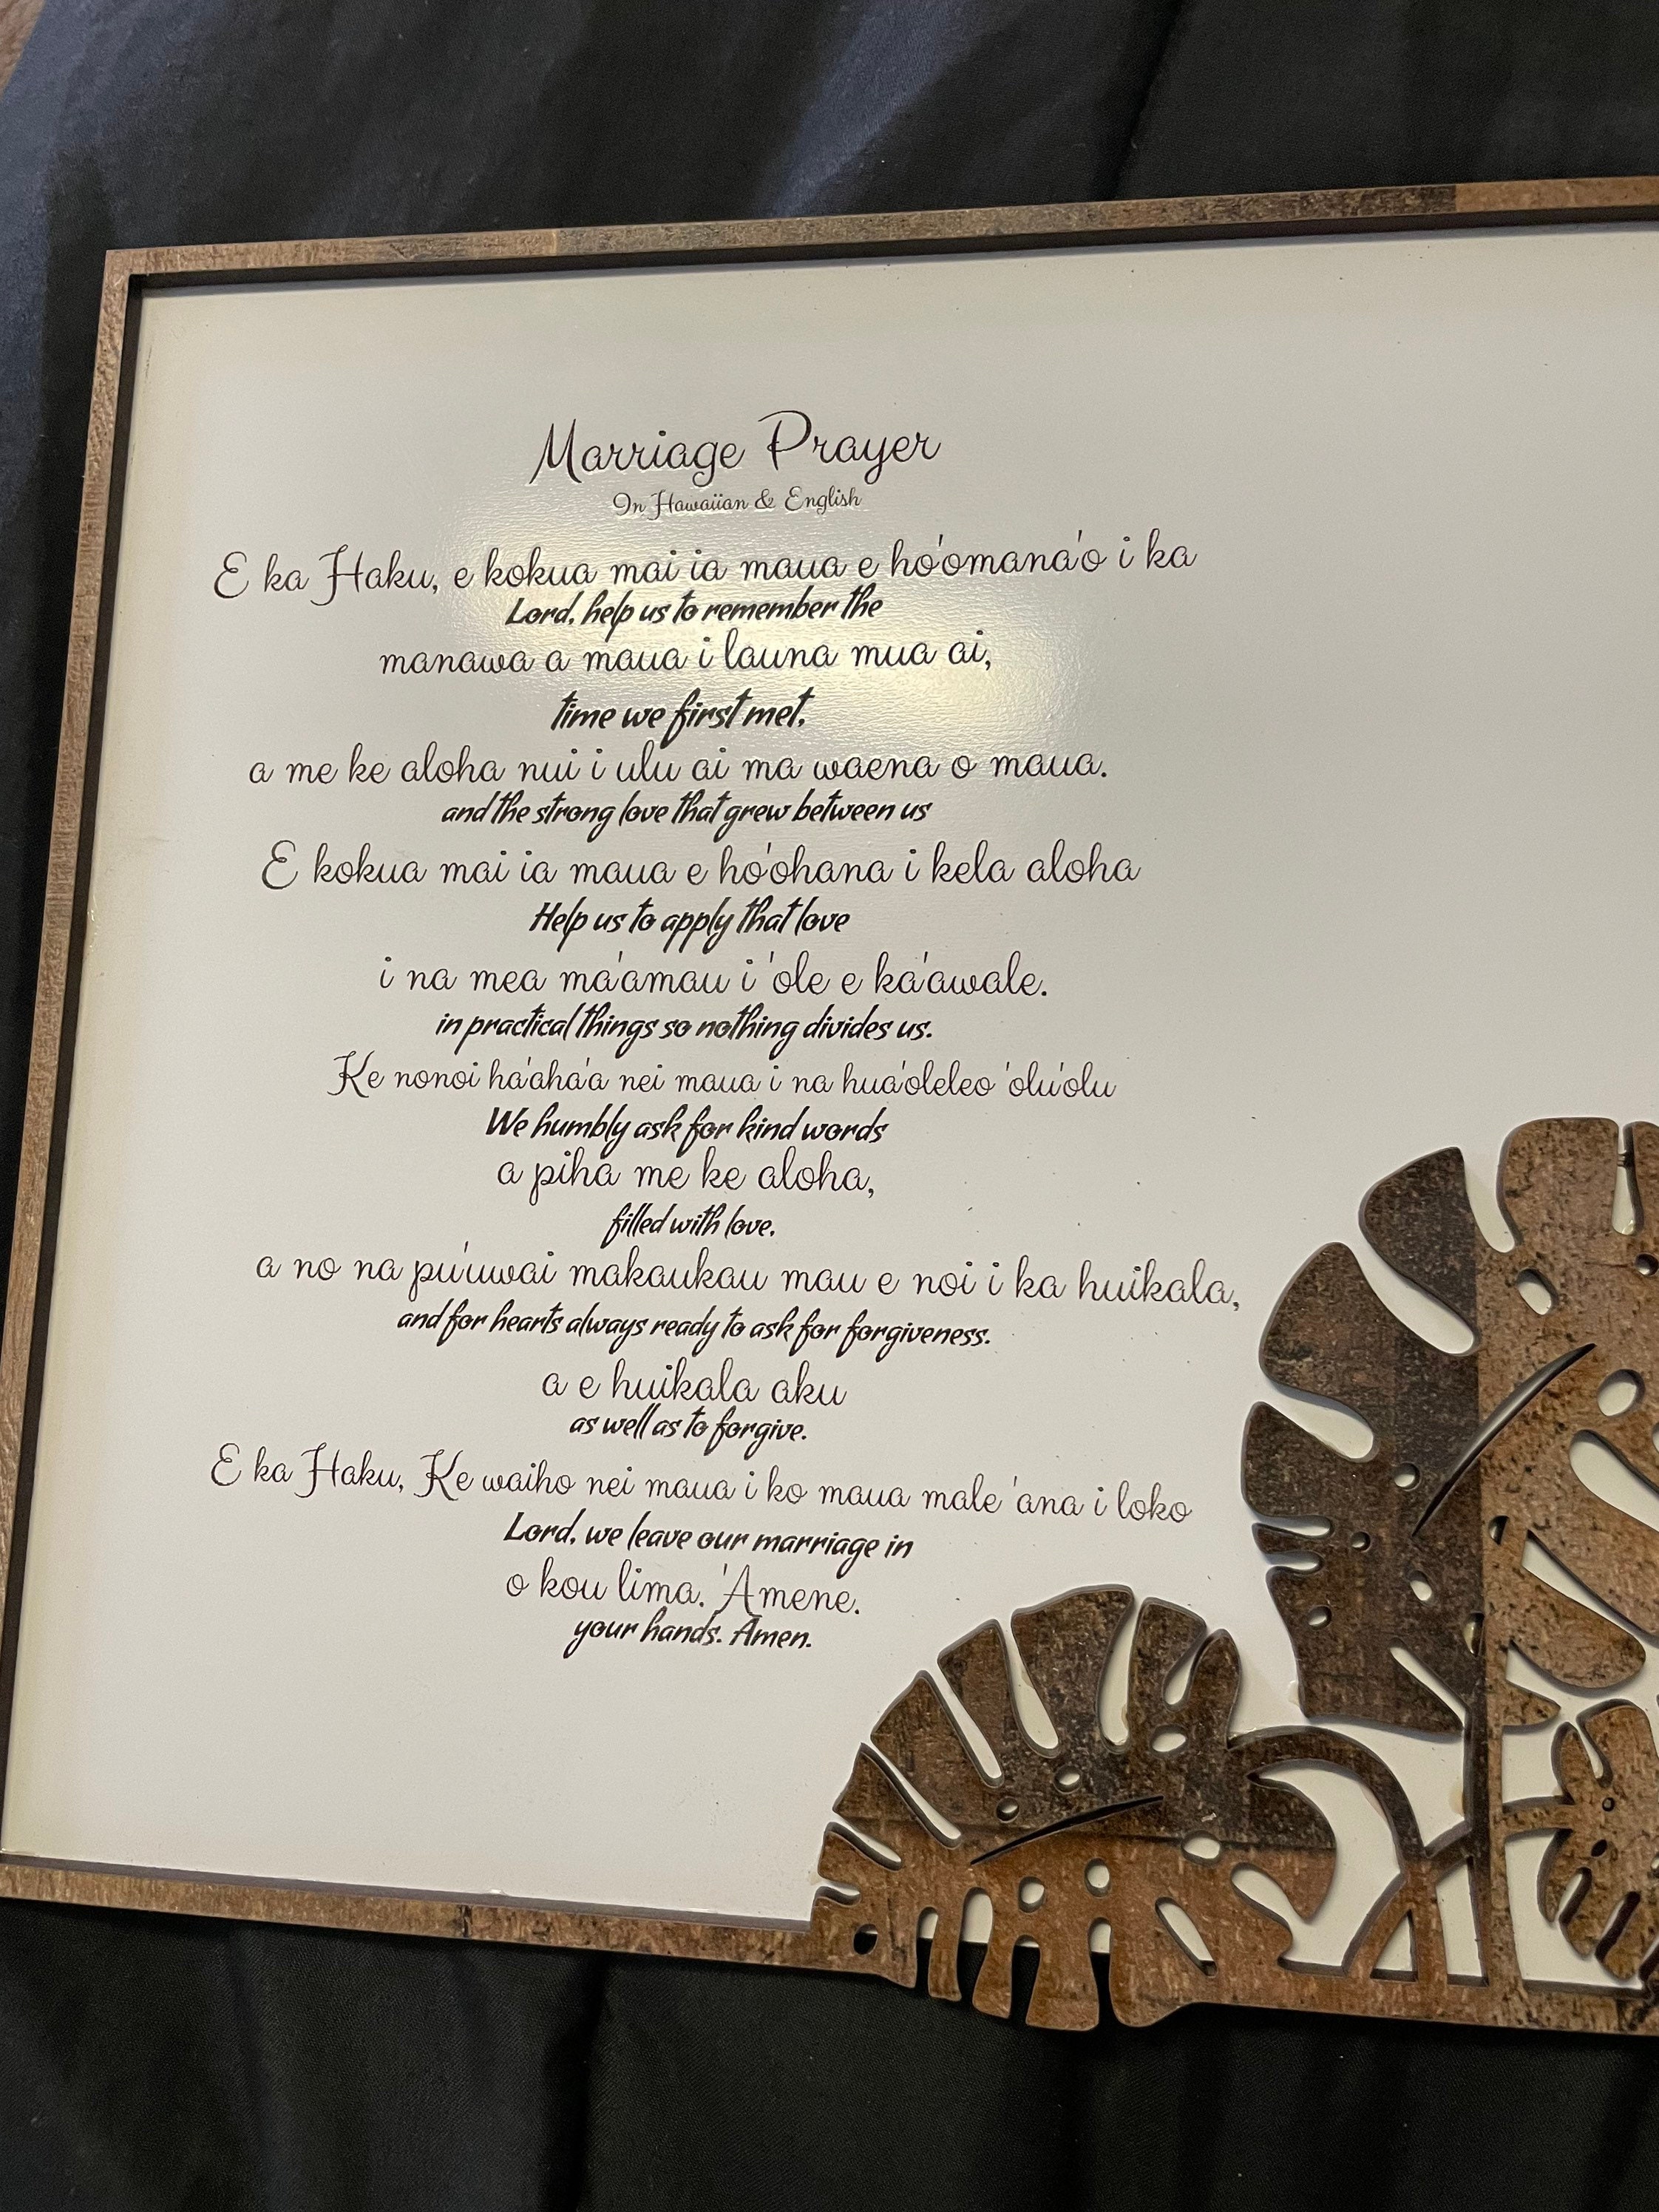 Marriage Prayer
In Hawaiian & English
E ka Haku, e kokua mai ia maua e ho'omana'o i ka
Lord, help us to remember the
manawa a maua i launa mua ai,
time we first met,
a me ke aloha nui i ulu ai ma waena o maua.
and the strong love that grew between us
E kokua mai ia maua e ho'ohana i kela aloha
Help us to apply that love
i na mea ma'amau i 'ole e ka'awale.
in practical things so nothing divides us.
Ke nonoi ha'aha'a nei maua i na hua'oleleo 'olu'olu
We humbly ask for kind words
a piha me ke aloha,
filled with love.
a no na pu'uwai makaukau mau e noi i ka huikala,
and for hearts always ready to ask for forgiveness.
a e huikala aku
as well as to forgive.
E ka Haku, Ke waiho nei maua i ko maua male 'ana i loko
Lord, we leave our marriage in
o kou lima. 'Amene.
your hands. Amen.